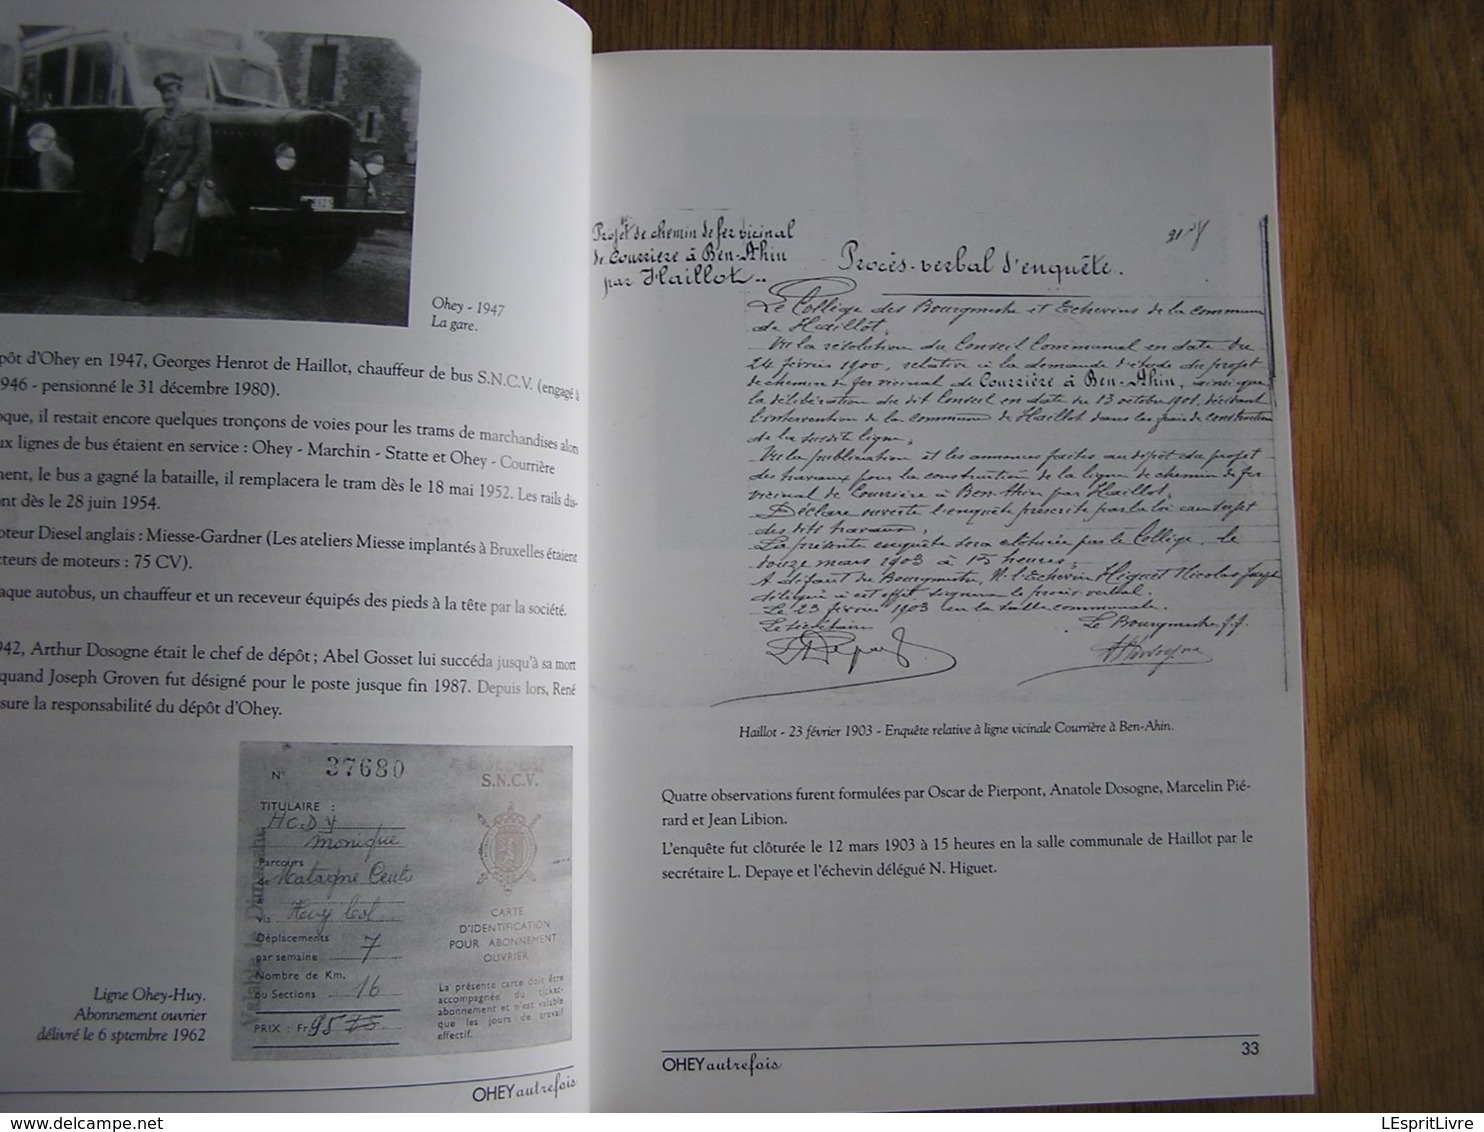 Ohey - 1947
La gare.
pôt d'Ohey en 1947, Georges Henrot de Haillot, chauffeur de bus S.N.C.V. (engagé à
946 - pensionné le 31 décembre 1980).
oque, il restait encore quelques tronçons de voies pour les trams de marchandises alors
ux lignes de bus étaient en service : Ohey - Marchin - Statte et Ohey - Courrière
ment, le bus a gagné la bataille, il remplacera le tram dès le 18 mai 1952. Les rails dis-
nt dès le 28 juin 1954.
oteur Diesel anglais : Miesse-Gardner (Les ateliers Miesse implantés à Bruxelles étaient
cteurs de moteurs : 75 CV).
aque autobus, un chauffeur et un receveur équipés des pieds à la tête par la société.
942, Arthur Dosogne était le chef de dépôt ; Abel Gosset lui succéda jusqu'à sa mort
quand Joseph Groven fut désigné pour le poste jusque fin 1987. Depuis lors, René
sure la responsabilité du dépôt d'Ohey.
N° 37680
S.N.C.V.
TITULAIRE :
Monique
Parcours
de Matagne
via
Déplacements
par semaine 7
Nombre de Km.
ou Sections 16
PRIX : Fr.
CARTE
D'IDENTIFICATION
POUR ABONNEMENT
OUVRIER
La présente carte doit être
accompagnée du ticket-
abonnement et n'est valable
que les jours de travail
effectif.
Valable le Dimanche
Ligne Ohey-Huy.
Abonnement ouvrier
délivré le 6 sptembre 1962
OHEY autrefois
Projet de chemin de fer vicinal
de Courrière à Ben-Ahin
par Haillot..
Procès-verbal d'enquête.
Le Collège des Bourgmestre et Echevins de la commune
de Haillot,
Vu la résolution du Conseil Communal en date du
24 février 1900, relative à la demande d'étude du projet
de chemin de fer vicinal de Courrière à Ben-Ahin, ainsi que
la délibération du dit Conseil en date du 13 octobre 1901, décidant
l'intervention de la commune de Haillot dans les frais de construction
de la susdite ligne,
Vu la publication et les annonces faites au dépôt du projet
des travaux pour la construction de la ligne de chemin de fer
vicinal de Courrière à Ben-Ahin par Haillot,
Déclare ouverte l'enquête prescrite par la loi au sujet
des dits travaux,
La présente enquête sera clôturée par le Collège, le
douze mars 1903 à 15 heures,
A défaut du Bourgmestre, M. l'Echevin Higuet Nicolas Joseph
délégué à cet effet signera le procès-verbal.
Le 23 février 1903 en la salle communale.
Le secrétaire
Le Bourgmestre ff.
Haillot - 23 février 1903 - Enquête relative à ligne vicinale Courrière à Ben-Ahin.
Quatre observations furent formulées par Oscar de Pierpont, Anatole Dosogne, Marcelin Pié-
rard et Jean Libion.
L'enquête fut clôturée le 12 mars 1903 à 15 heures en la salle communale de Haillot par le
secrétaire L. Depaye et l'échevin délégué N. Higuet.
OHEY autrefois
33
LEspritLivre